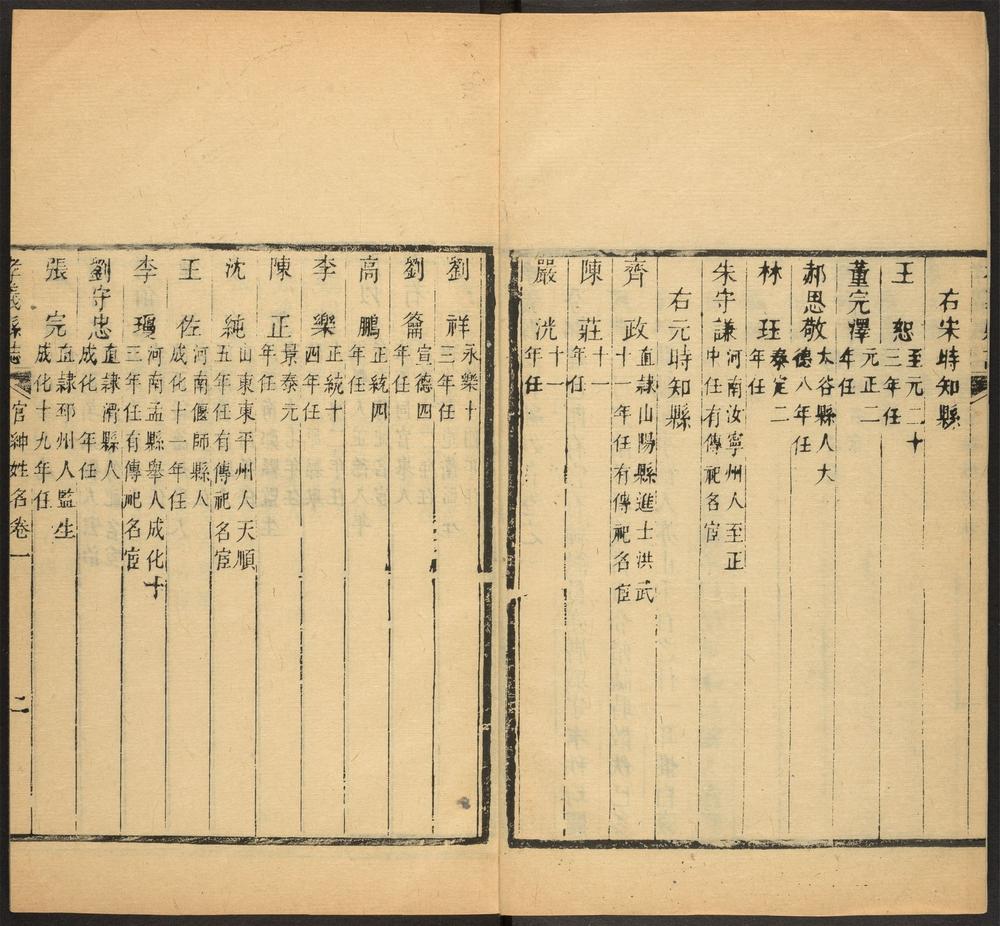 右宋時知縣
王恕 至元二十三年任
董完澤 元正二年任
郝思敬 太谷縣人大德八年任
林玨 泰定二年任
朱守謙 河南汝寧州人至正中任有傳祀名宦
右元時知縣
齊政 直隷山陽縣進士洪武十一年任有傳祀名宦
陳莊 十一年任
嚴洸 十一年任
劉祥 永樂十三年任
劉籥 宣德四年任
高鵬 正統四年任
李樂 正統十四年任
陳正 景泰元年任
沈純 山東東平州人天順五年任有傳祀名宦
王佐 河南偃師縣人成化十一年任
李瑥 河南孟縣舉人成化十三年任有傳祀名宦
劉守忠 直隷滑縣人成化 年任
張完 直隷邳州人監生成化十九年任
孝義縣志 官紳姓名卷一 二